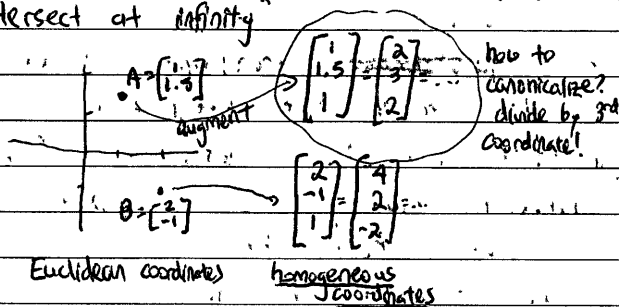 tersect at infinity
A=[1 1.5]
augment
[1 1.5 1] = [2 3 2] = ...
how to
canonicalize?
divide by 3rd
coordinate!
B=[2 -1]
[2 -1 1] = [4 2 -2] = ...
Euclidean coordinates
homogeneous
coordinates